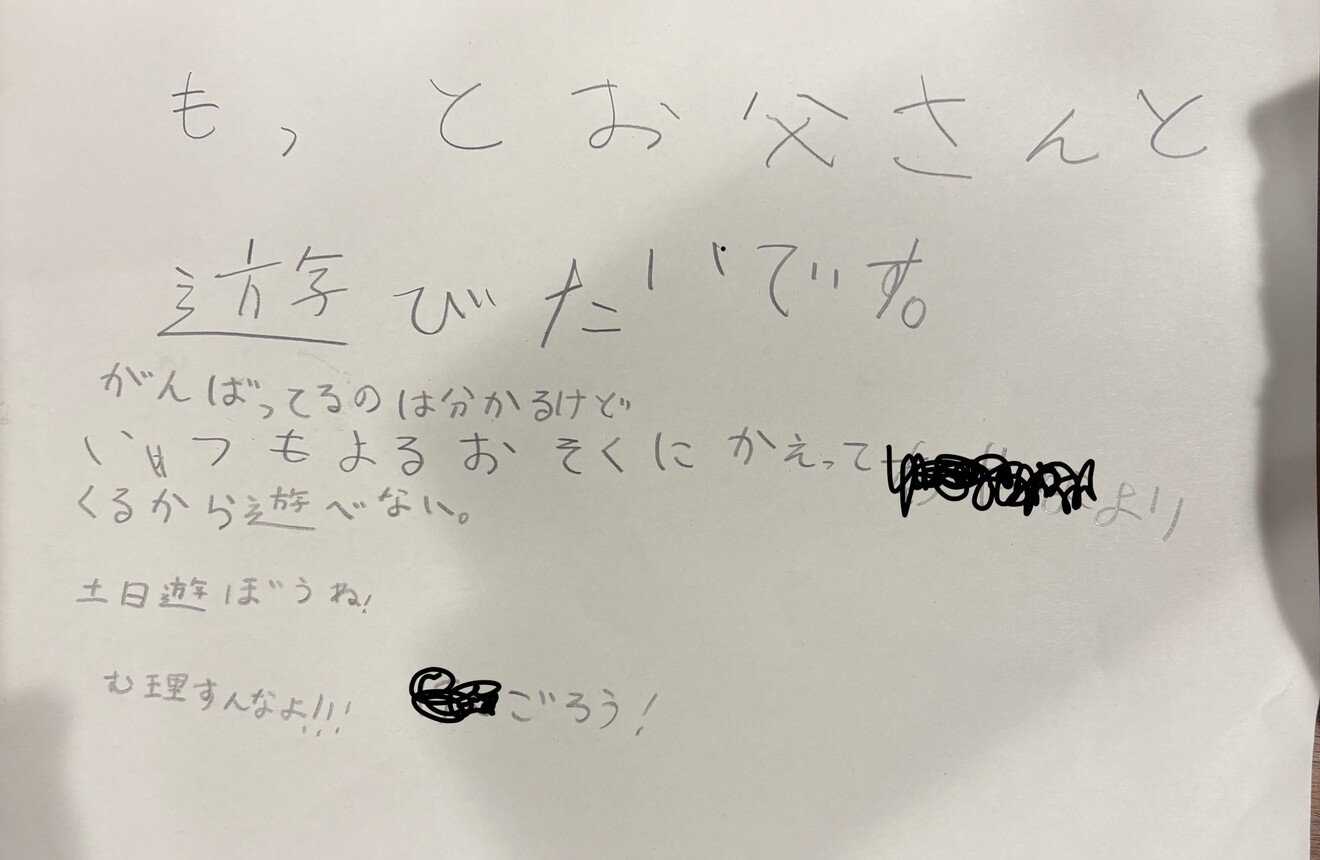 もっとお父さんと
遊びたいです。
がんばってるのは分かるけど
いつもよるおそくにかえって
くるから遊べない。
より
土日遊ぼうね!
む理すんなよ!!! ごろう!